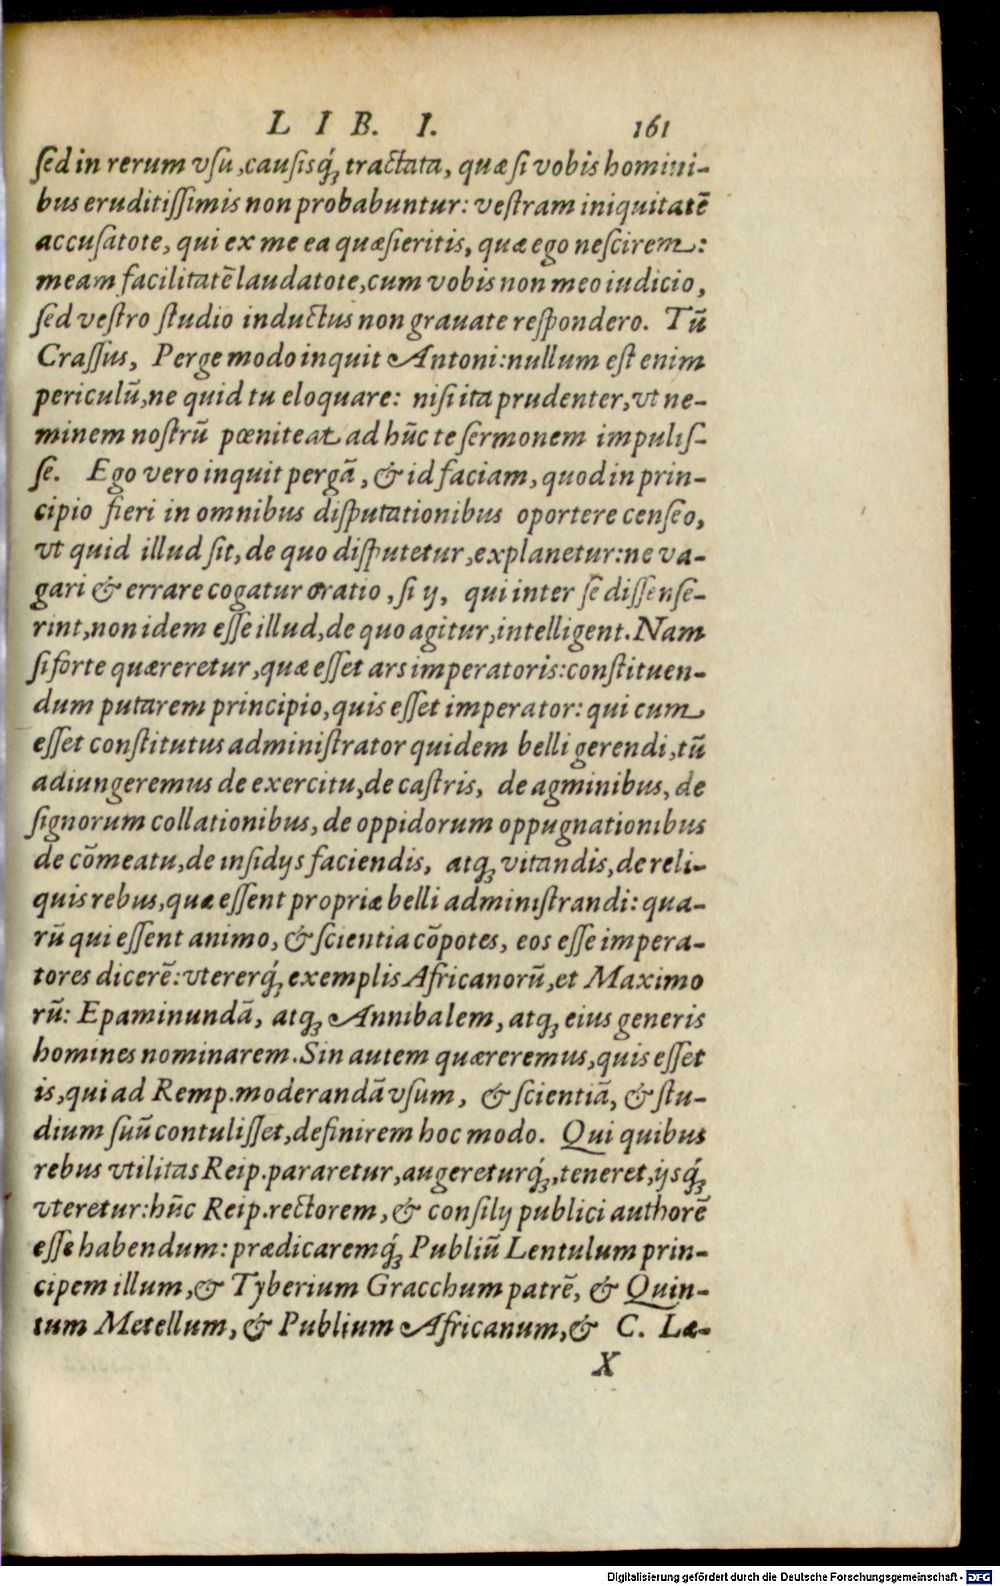 LIB. I. 161
ſed in rerum vſu, cauſisq́; tractata, quæ ſi vobis homini-
bus eruditiſſimis non probabuntur: veſtram iniquitatē
accuſatote, qui ex me ea quæſieritis, quæ ego neſcirem:
meam facilitatē laudatote, cum vobis non meo iudicio,
ſed veſtro ſtudio inductus non grauate reſpondero. Tū
Craſſus, Perge modo inquit Antoni: nullum eſt enim
periculū, ne quid tu eloquare: niſi ita prudenter, vt ne-
minem noſtrū pœniteat ad hūc te ſermonem impuliſ-
ſe. Ego vero inquit pergā, & id faciam, quod in prin-
cipio fieri in omnibus diſputationibus oportere cenſeo,
vt quid illud ſit, de quo diſputetur, explanetur: ne va-
gari & errare cogatur oratio, ſi ij, qui inter ſe diſſenſe-
rint, non idem eſſe illud, de quo agitur, intelligent. Nam
ſi forte quæreretur, quæ eſſet ars imperatoris: conſtituen-
dum putarem principio, quis eſſet imperator: qui cum
eſſet conſtitutus adminiſtrator quidem belli gerendi, tū
adiungeremus de exercitu, de caſtris, de agminibus, de
ſignorum collationibus, de oppidorum oppugnationibus
de cōmeatu, de inſidijs faciendis, atq; vitandis, de reli-
quis rebus, quæ eſſent propriæ belli adminiſtrandi: qua-
rū qui eſſent animo, & ſcientia cōpotes, eos eſſe impera-
tores dicerē: vtererq́; exemplis Africanorū, et Maximo
rū: Epaminundā, atq; Annibalem, atq; eius generis
homines nominarem. Sin autem quæreremus, quis eſſet
is, qui ad Remp. moderandā vſum, & ſcientiā, & ſtu-
dium ſuū contuliſſet, definirem hoc modo. Qui quibus
rebus vtilitas Reip. pararetur, augereturq́;, teneret, ijsq́;
vteretur: hūc Reip. rectorem, & conſilij publici authorē
eſſe habendum: prædicaremq́; Publiū Lentulum prin-
cipem illum, & Tyberium Gracchum patrē, & Quin-
tum Metellum, & Publium Africanum, & C. Læ-
X
Digitalisierung gefördert durch die Deutsche Forschungsgemeinschaft - DFG